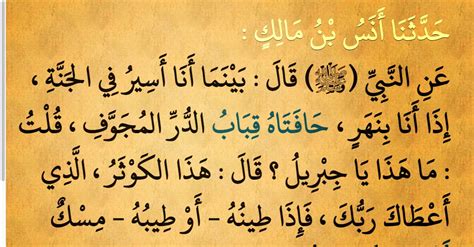 حَدَّثَنَا أَنَسُ بْنُ مَالِكٍ :
عَنِ النَّبِيِّ (ﷺ) قَالَ : بَيْنَمَا أَنَا أَسِيرُ فِي الجَنَّةِ ،
إِذَا أَنَا بِنَهَرٍ ، حَافَتَاهُ قِبَابُ الدُّرِّ المُجَوَّفِ ، قُلْتُ
: مَا هَذَا يَا جِبْرِيلُ ؟ قَالَ : هَذَا الكَوْثَرُ ، الَّذِي
أَعْطَاكَ رَبُّكَ ، فَإِذَا طِينُهُ - أَوْ طِيبُهُ - مِسْكٌ